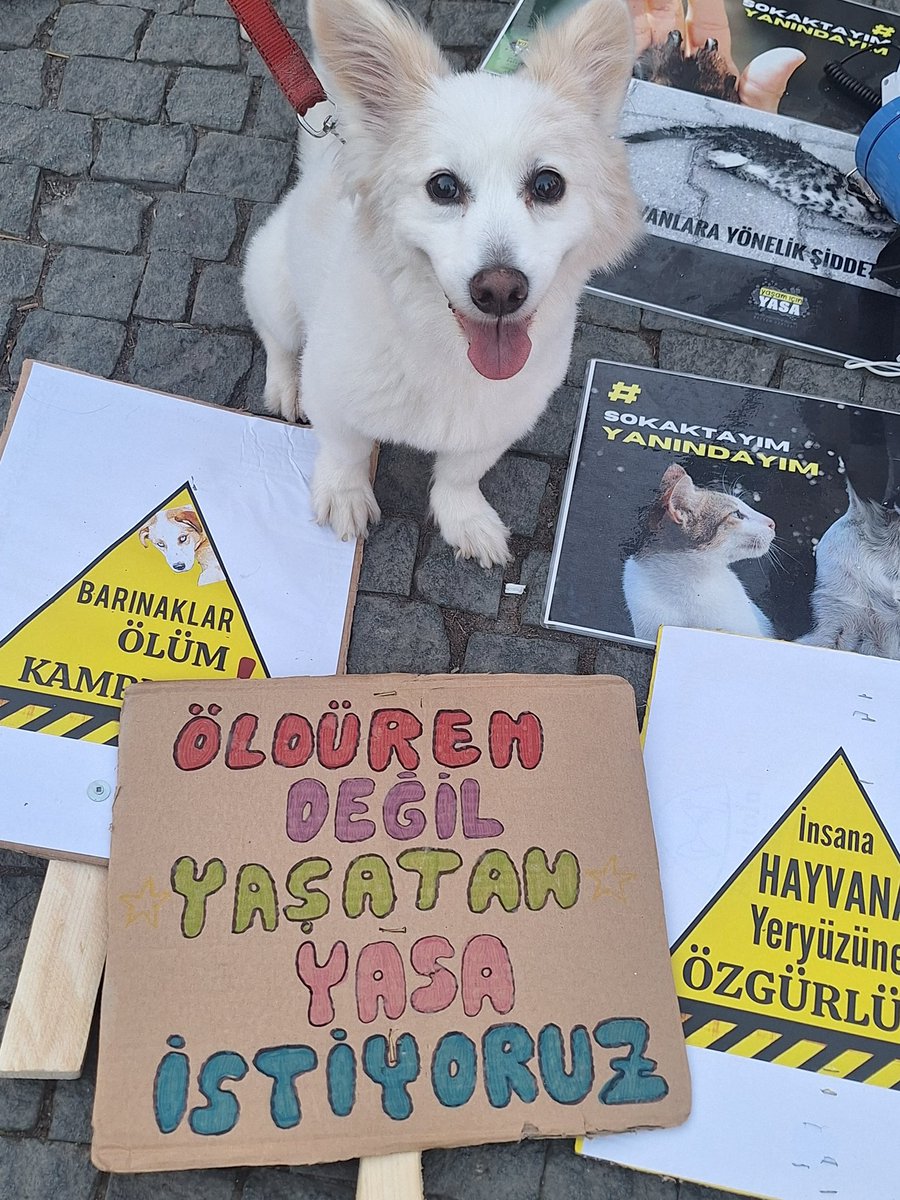 SOKAKTAYIM
YANINDAYIM
#
VANLARA YÖNELİK ŞİDDET
yaşam için
YASA
#
SOKAKTAYIM
YANINDAYIM
BARINAKLAR
ÖLÜM
KAMP
!
ÖLDÜREN
DEĞİL
YAŞATAN
YASA
İSTİYORUZ
İnsana
HAYVANA
Yeryüzüne
ÖZGÜRLÜ